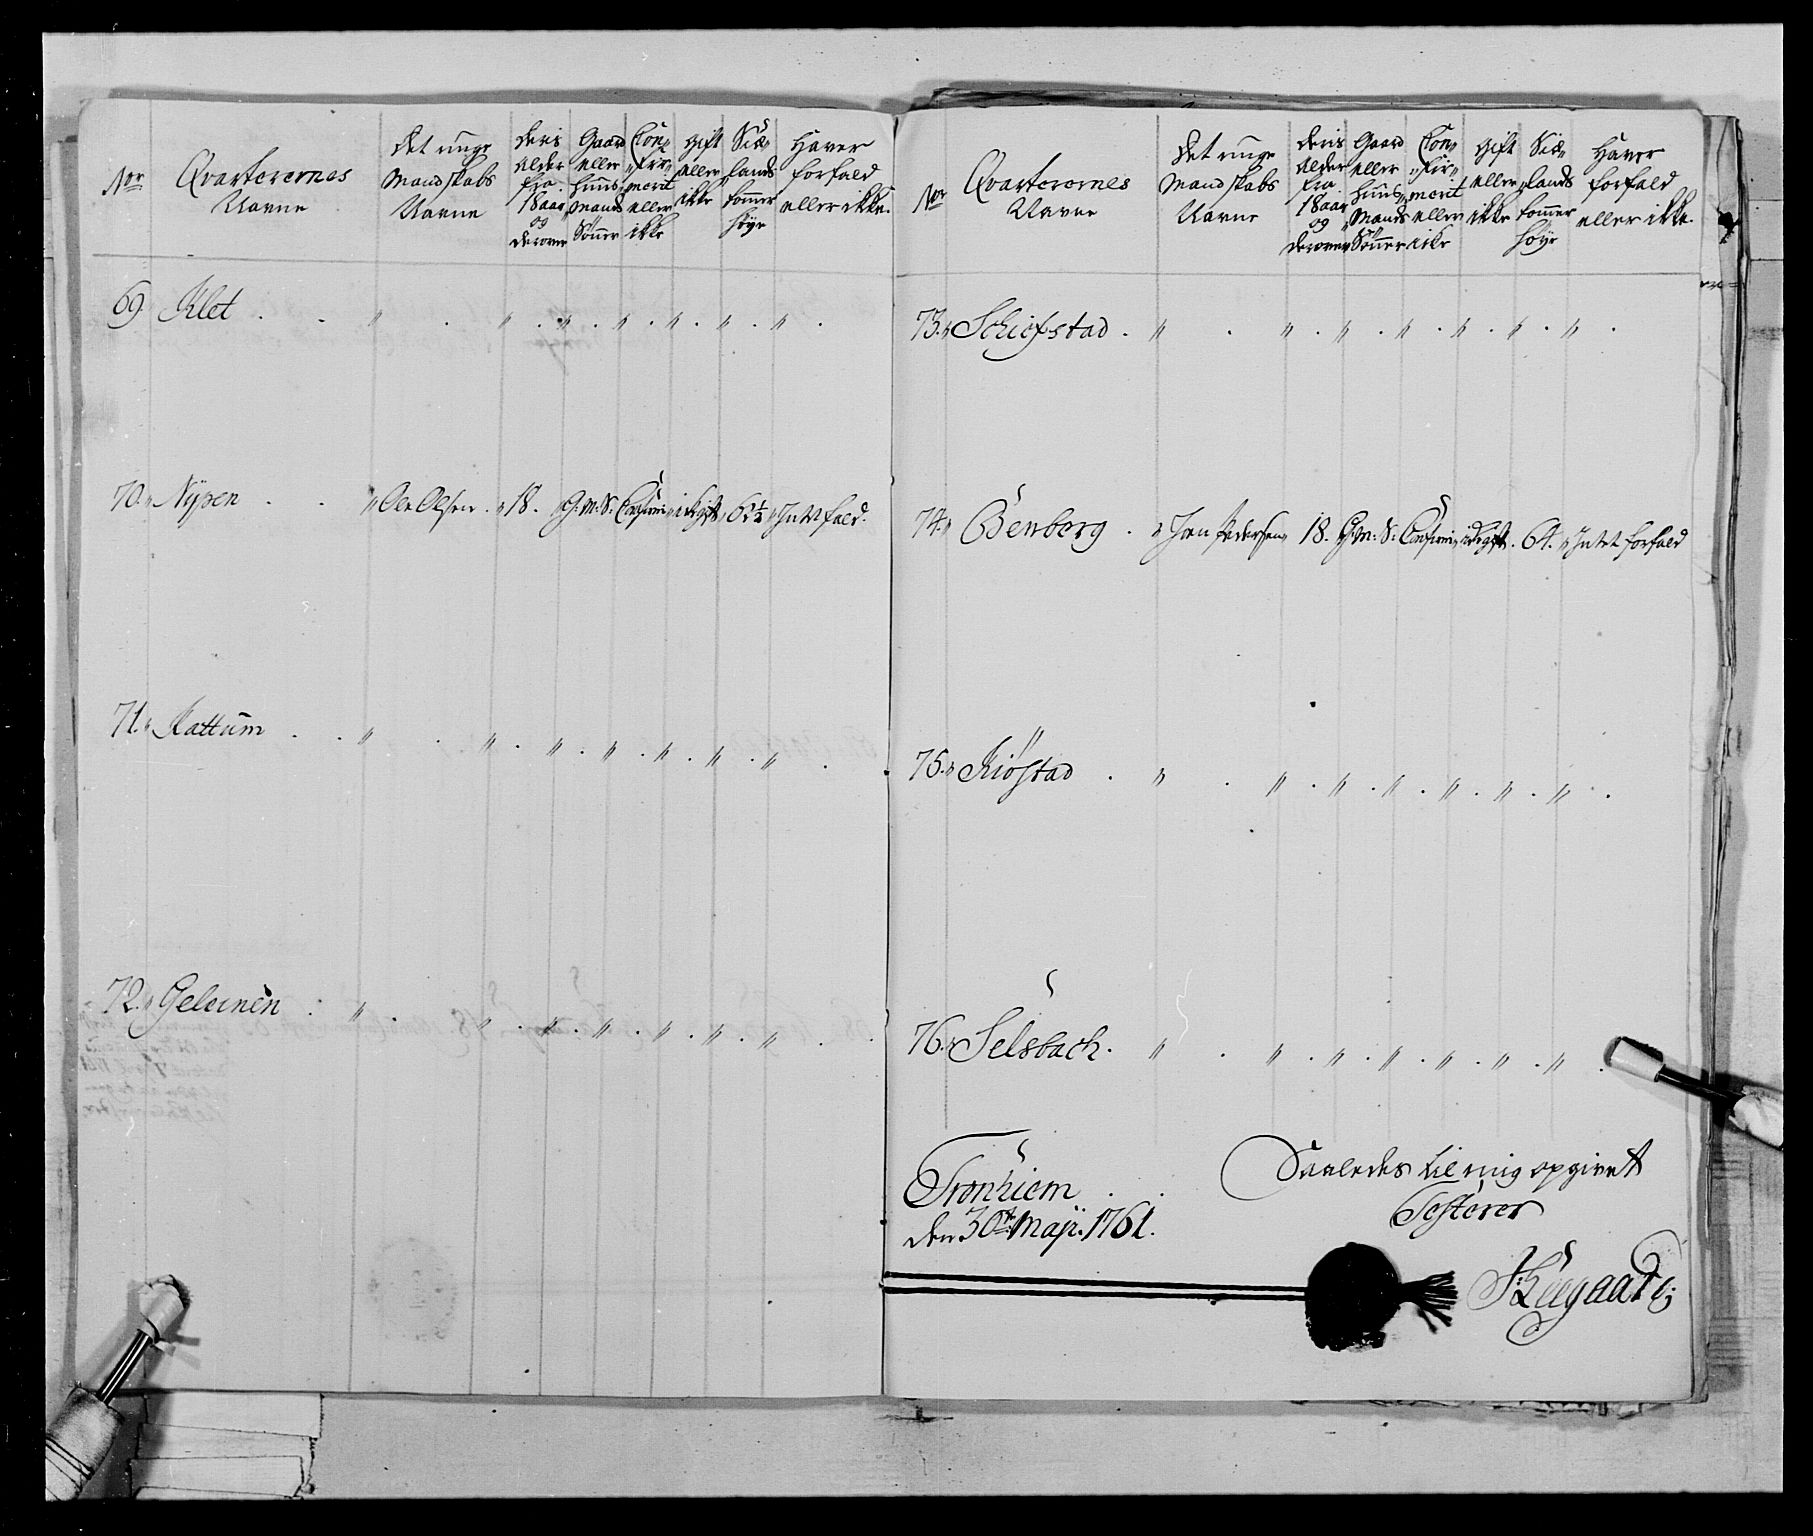 Nor
Qvarterernes
Navne
Det unge
Mandskabs
Navne
Deris
alder
fra
18 aar
og
derover
Gaard
eller
Huus
Mands
Sönner
Con„
„fir„
merit
eller
ikke
gift
eller
ikke
Siæ„
„lands
tommer
höye
Haver
forfald
eller ikke.
69. Klet . . „ . „ . „ . „ . „ . „ . „ .
70. Nÿpen . . „ Ole Olsen . „ 18. „ G: M: S: Confirm: ikke gift „ 63½ „ Intet fald.
71. Kattum . . „ . „ . „ . „ . „ . „ . „ .
72. Geleinen : „ . „ . „ . „ . „ . „ . „ . .
Nor
Qvarterernes
Navne
Det unge
Mandskabs
Navne
Deris
alder
fra
18 aar
og
derover
Gaard
eller
Huus„
„Mands
Sönner
Con„
„fir„
merit
eller
ikke
gift
eller
ikke
Siæ„
„lands
tommer
höye
Haver
forfald
eller ikke.
73. Schiefstad . „ . „ . „ . „ . „ . „ . „ .
74. Ösenberg . „ Joen Pedersen „ 18. G: M: S: Confirm: ikke gift . 64. „ Intet forfald
75. Kiöstad . „ . „ . „ . „ . „ . „ . „ . .
76. Selsbach . „ . „ . „ . „ . „ . „ . „ .
Tronhiem . .
den 30te Maji: 1761.
Saaledes til mig opgivet
Testerer